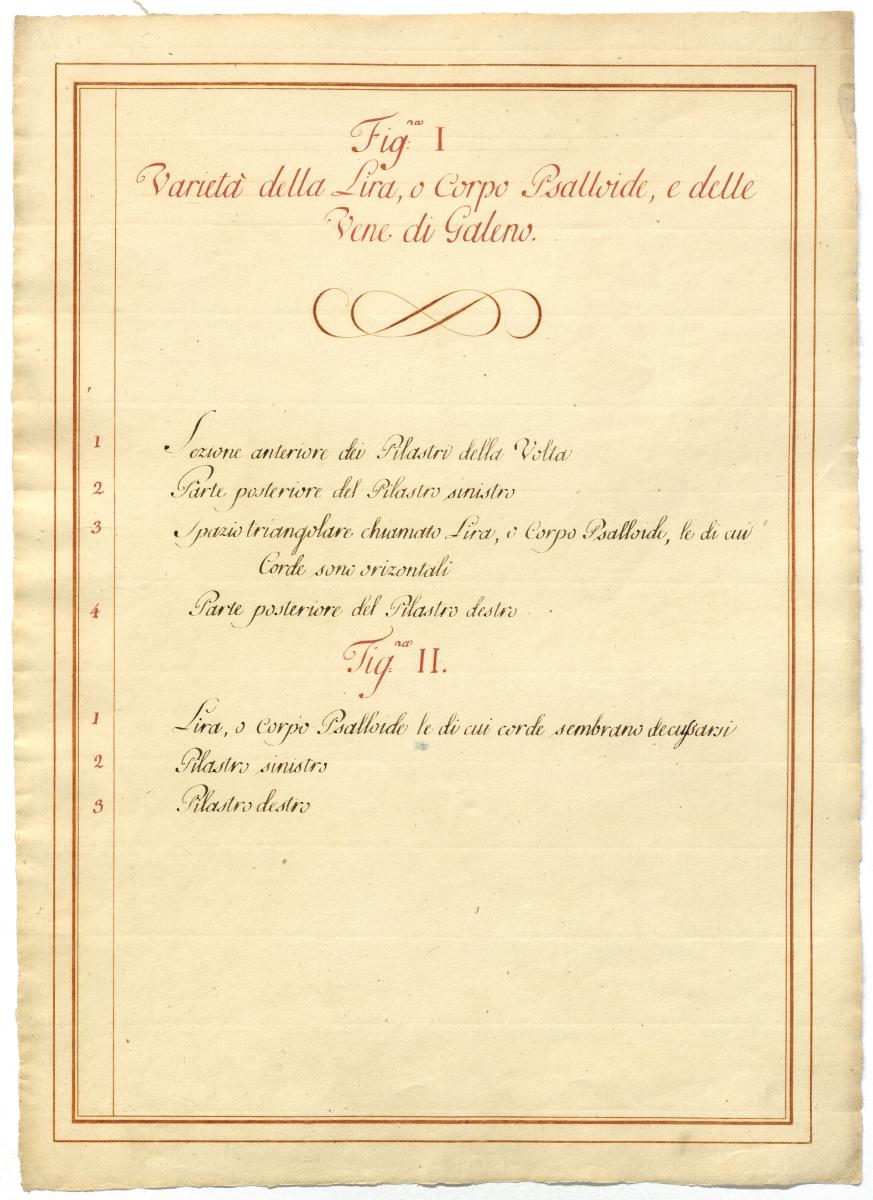 Fig:ra I
Varietà della Lira, o Corpo Psalloide, e delle
Vene di Galeno.
1 Sezione anteriore dei Pilastri della Volta
2 Parte posteriore del Pilastro sinistro
3 Spazio triangolare chiamato Lira, o Corpo Psalloide, le di cui
Corde sono orizontali
4 Parte posteriore del Pilastro destro
Fig:ra II.
1 Lira, o Corpo Psalloide le di cui corde sembrano decussarsi
2 Pilastro sinistro
3 Pilastro destro